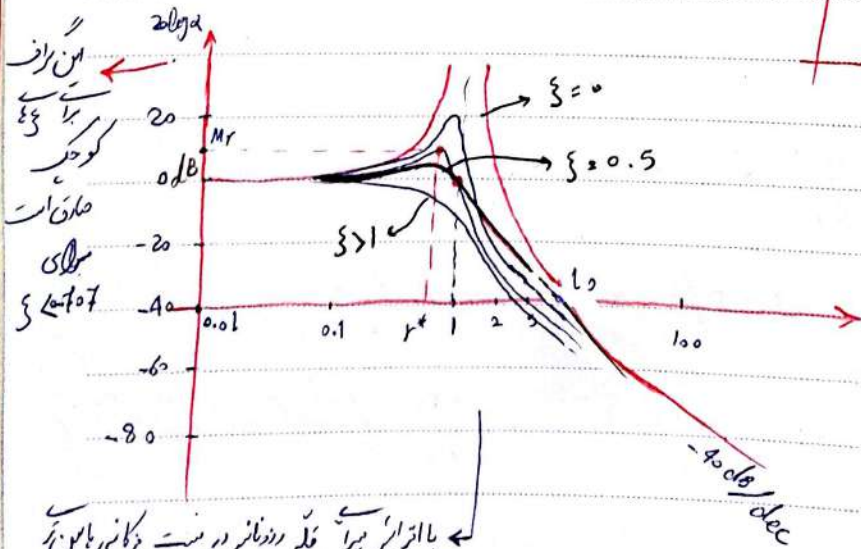 20logα
این گراف
برای ξ های
کوچک
صادق است
برای
ξ<0.707
20
Mr
0dB
-20
-40
-60
-80
ξ=0
ξ=0.5
ξ>1
0.01
0.1
r*
1
2
3
10
100
-40 dB/dec
با افزایش میرایی قله رزونانس در سمت فرکانس پایین تر